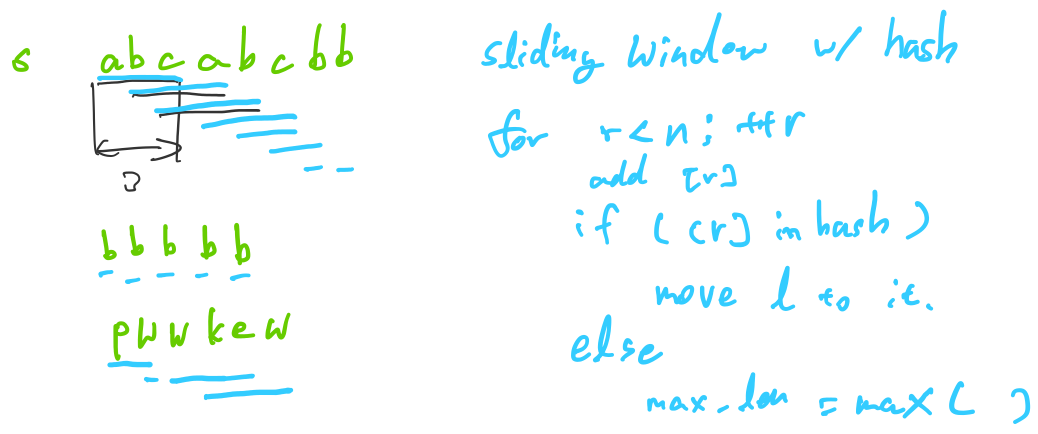 s abcabcbb
3
bbbbb
pwwkew
sliding window w/ hash
for r<n; ++r
add [r]
if ([r] in hash)
move l to it.
else
max_len = max( )